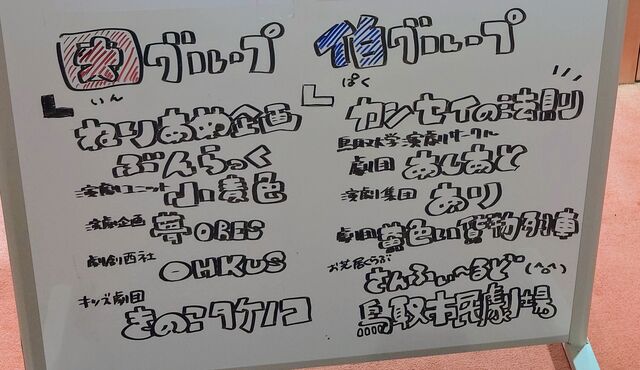 因グループ
いん
ねりあめ企画
ぶんらっく
演劇ユニット 小麦色
演劇企画 夢ORES
劇創西社 OHKUS
キッズ劇団 きのこタケノコ
伯グループ
ぱく
カンセイの法則
鳥取大学演劇サークル
劇団 あしあと
演劇集団 あり
劇団 黄色い貨物列車
お芝居くらぶ
さんふぃ〜るど(^o^)
鳥取市民劇場